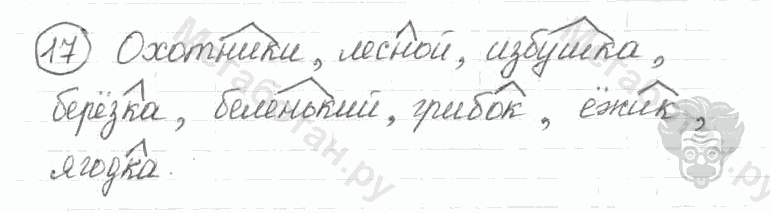 17 Охотники, лесной, избушка,
берёзка, беленький, грибок, ёжик,
ягодка.
Мегаботан.ру
Мегаботан.ру